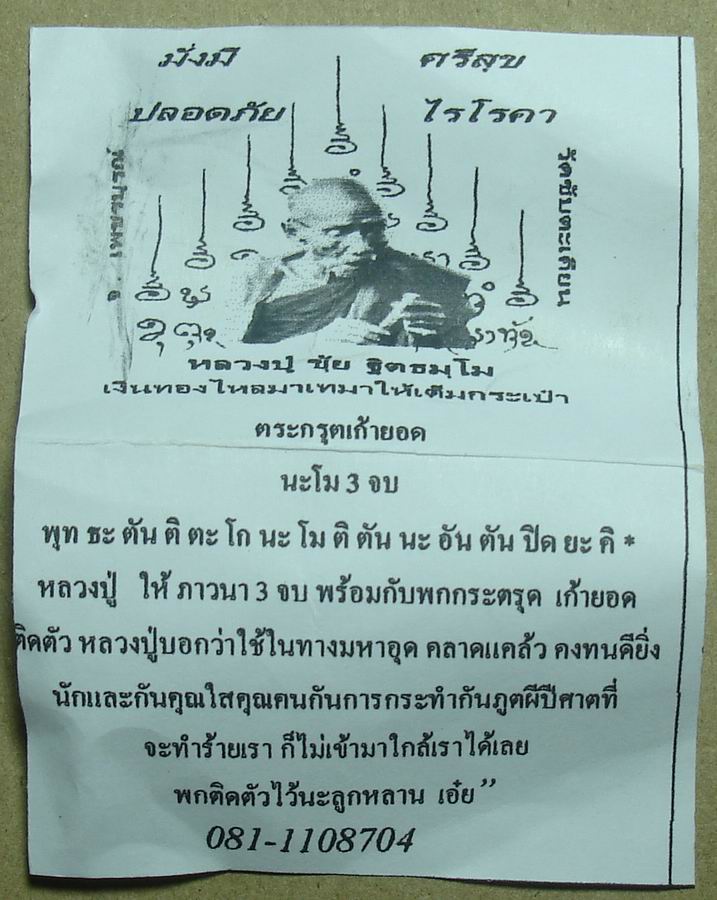 มั่งมี ศรีสุข
ปลอดภัย ไร้โรคา
วัดซับตะเคียน
หลวงปู่ ชุ้ย ฐิตธมฺโม
เงินทองไหลมาเทมาให้เต็มกระเป๋า
ตระกรุตเก้ายอด
นะโม 3 จบ
พุท ธะ ตัน ติ ตะ โก นะ โม ติ ตัน นะ อัน ตัน ปิด ยะ คิ *
หลวงปู่ ให้ ภาวนา 3 จบ พร้อมกับพกกระตรุด เก้ายอด
ติดตัว หลวงปู่บอกว่าใช้ในทางมหาอุด คลาดแคล้ว คงทนดียิ่ง
นักและกันคุณใสคุณคนกันการกระทำกันภูตผีปีศาตที่
จะทำร้ายเรา ก็ไม่เข้ามาใกล้เราได้เลย
พกติดตัวไว้นะลูกหลาน เอ๋ย”
081-1108704